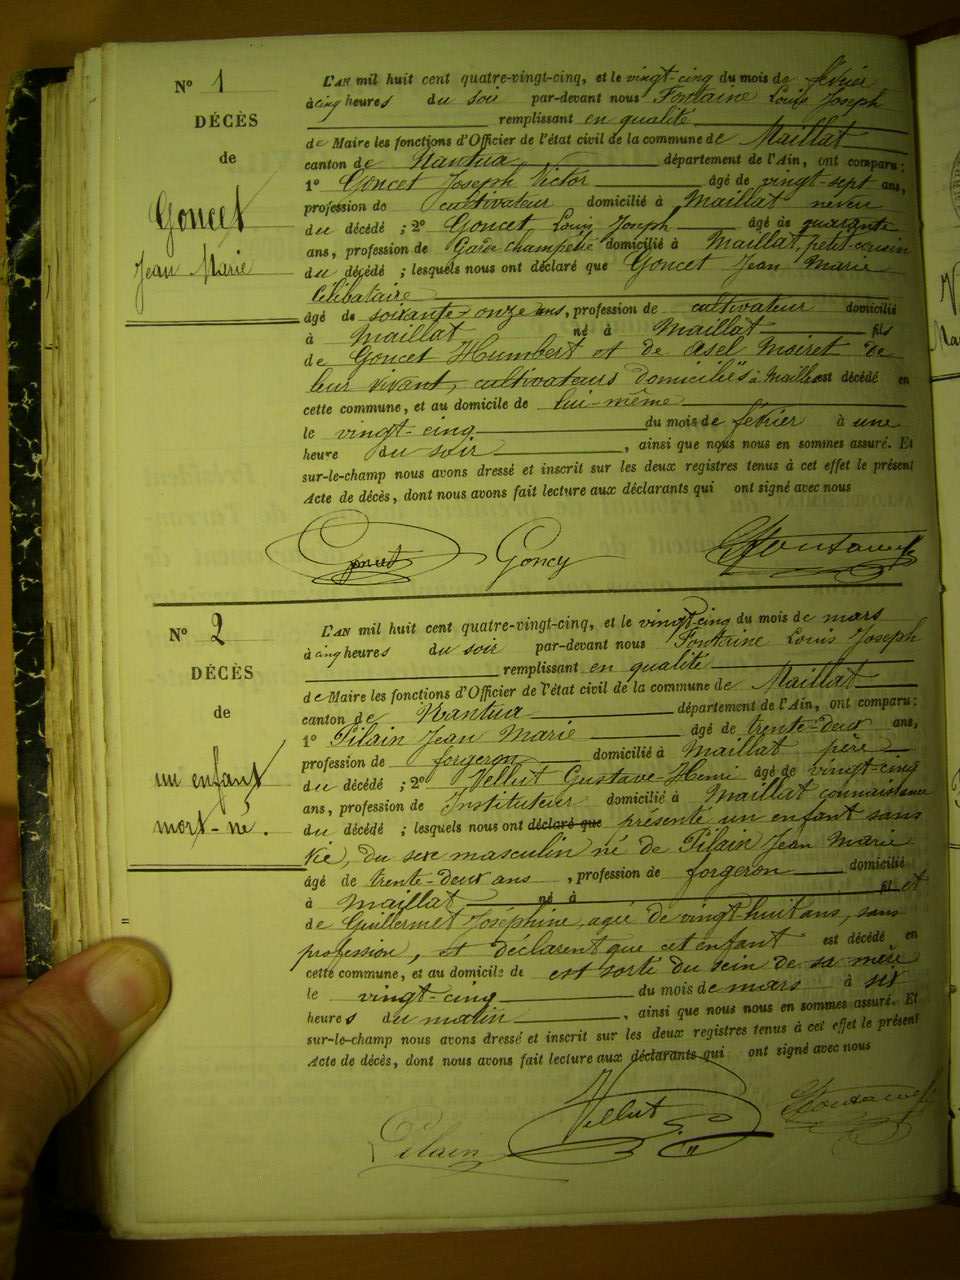 N° 1
DÉCÈS
de
Goncet
Jean Marie
L'AN mil huit cent quatre-vingt-cinq, et le vingt-cinq du mois de février
à cinq heures du soir par-devant nous Fontaine Louis Joseph
remplissant en qualité
de Maire les fonctions d'Officier de l'état civil de la commune de Maillat
canton de Nantua département de l'Ain, ont comparu:
1° Goncet Joseph Victor âgé de vingt-sept ans,
profession de cultivateur domicilié à Maillat neveu
du décédé; 2° Goncet Louis Joseph âgé de quarante
ans, profession de Garde champêtre domicilié à Maillat, petit-cousin
du décédé; lesquels nous ont déclaré que Goncet Jean Marie
Célibataire
âgé de soixante-onze ans, profession de cultivateur domicilié
à Maillat né à Maillat fils
de Goncet Humbert et de Moiret de
leur vivant, cultivateurs domiciliés à Maillat est décédé en
cette commune, et au domicile de lui-même
le vingt-cinq du mois de février à une
heure du soir, ainsi que nous nous en sommes assuré. Et
sur-le-champ nous avons dressé et inscrit sur les deux registres tenus à cet effet le présent
Acte de décès, dont nous avons fait lecture aux déclarants qui ont signé avec nous
Goncet Goncy Fontaine
N° 2
DÉCÈS
de
un enfant
mort-né.
L'AN mil huit cent quatre-vingt-cinq, et le vingt-cinq du mois de mars
à cinq heures du soir par-devant nous Fontaine Louis Joseph
remplissant en qualité
de Maire les fonctions d'Officier de l'état civil de la commune de Maillat
canton de Nantua département de l'Ain, ont comparu:
1° Pilain Jean Marie âgé de trente-deux ans,
profession de forgeron domicilié à Maillat père
du décédé; 2° Vellut Gustave Henri âgé de vingt-cinq
ans, profession de Instituteur domicilié à Maillat connaissance
du décédé; lesquels nous ont déclaré que présenté un enfant sans
vie, du sexe masculin né de Pilain Jean Marie
âgé de trente-deux ans, profession de forgeron domicilié
à Maillat né à fil et
de Guillermet Joséphine, agée de vingt-huit ans, sans
profession, et déclarent que cet enfant est décédé en
cette commune, et au domicile de est sorti du sein de sa mère
le vingt-cinq du mois de mars à six
heures du matin, ainsi que nous nous en sommes assuré. Et
sur-le-champ nous avons dressé et inscrit sur les deux registres tenus à cet effet le présent
Acte de décès, dont nous avons fait lecture aux déclarants qui ont signé avec nous
Pilain Vellut Fontaine